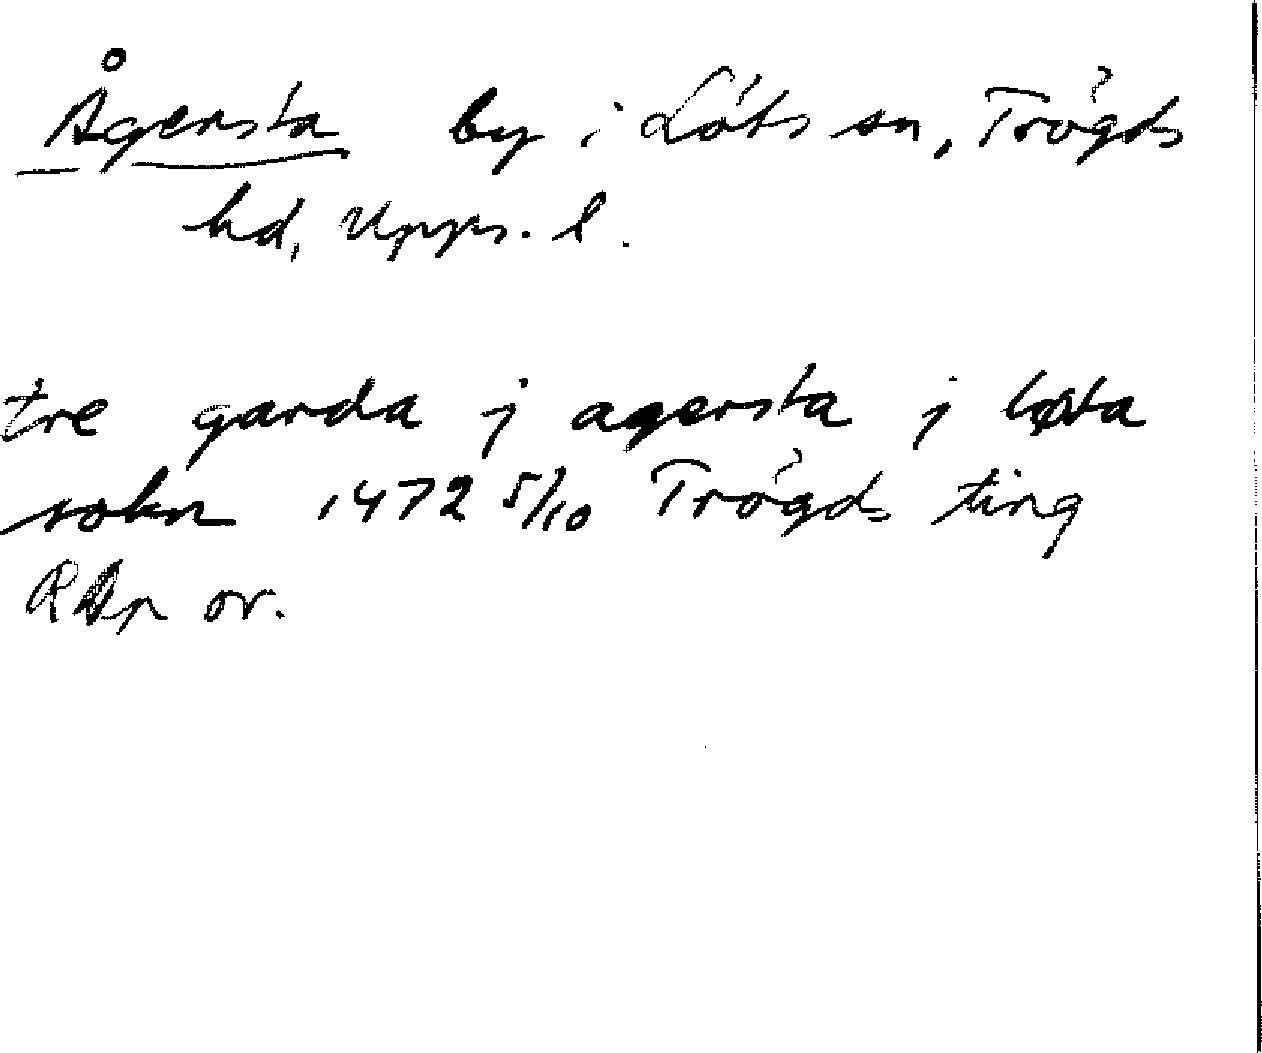 Ågersta by i Löts sn, Trögds
hd, Upps. l.
tre garda j agersta j løta
sokn 1472 5/10 Trögds ting
RAp or.